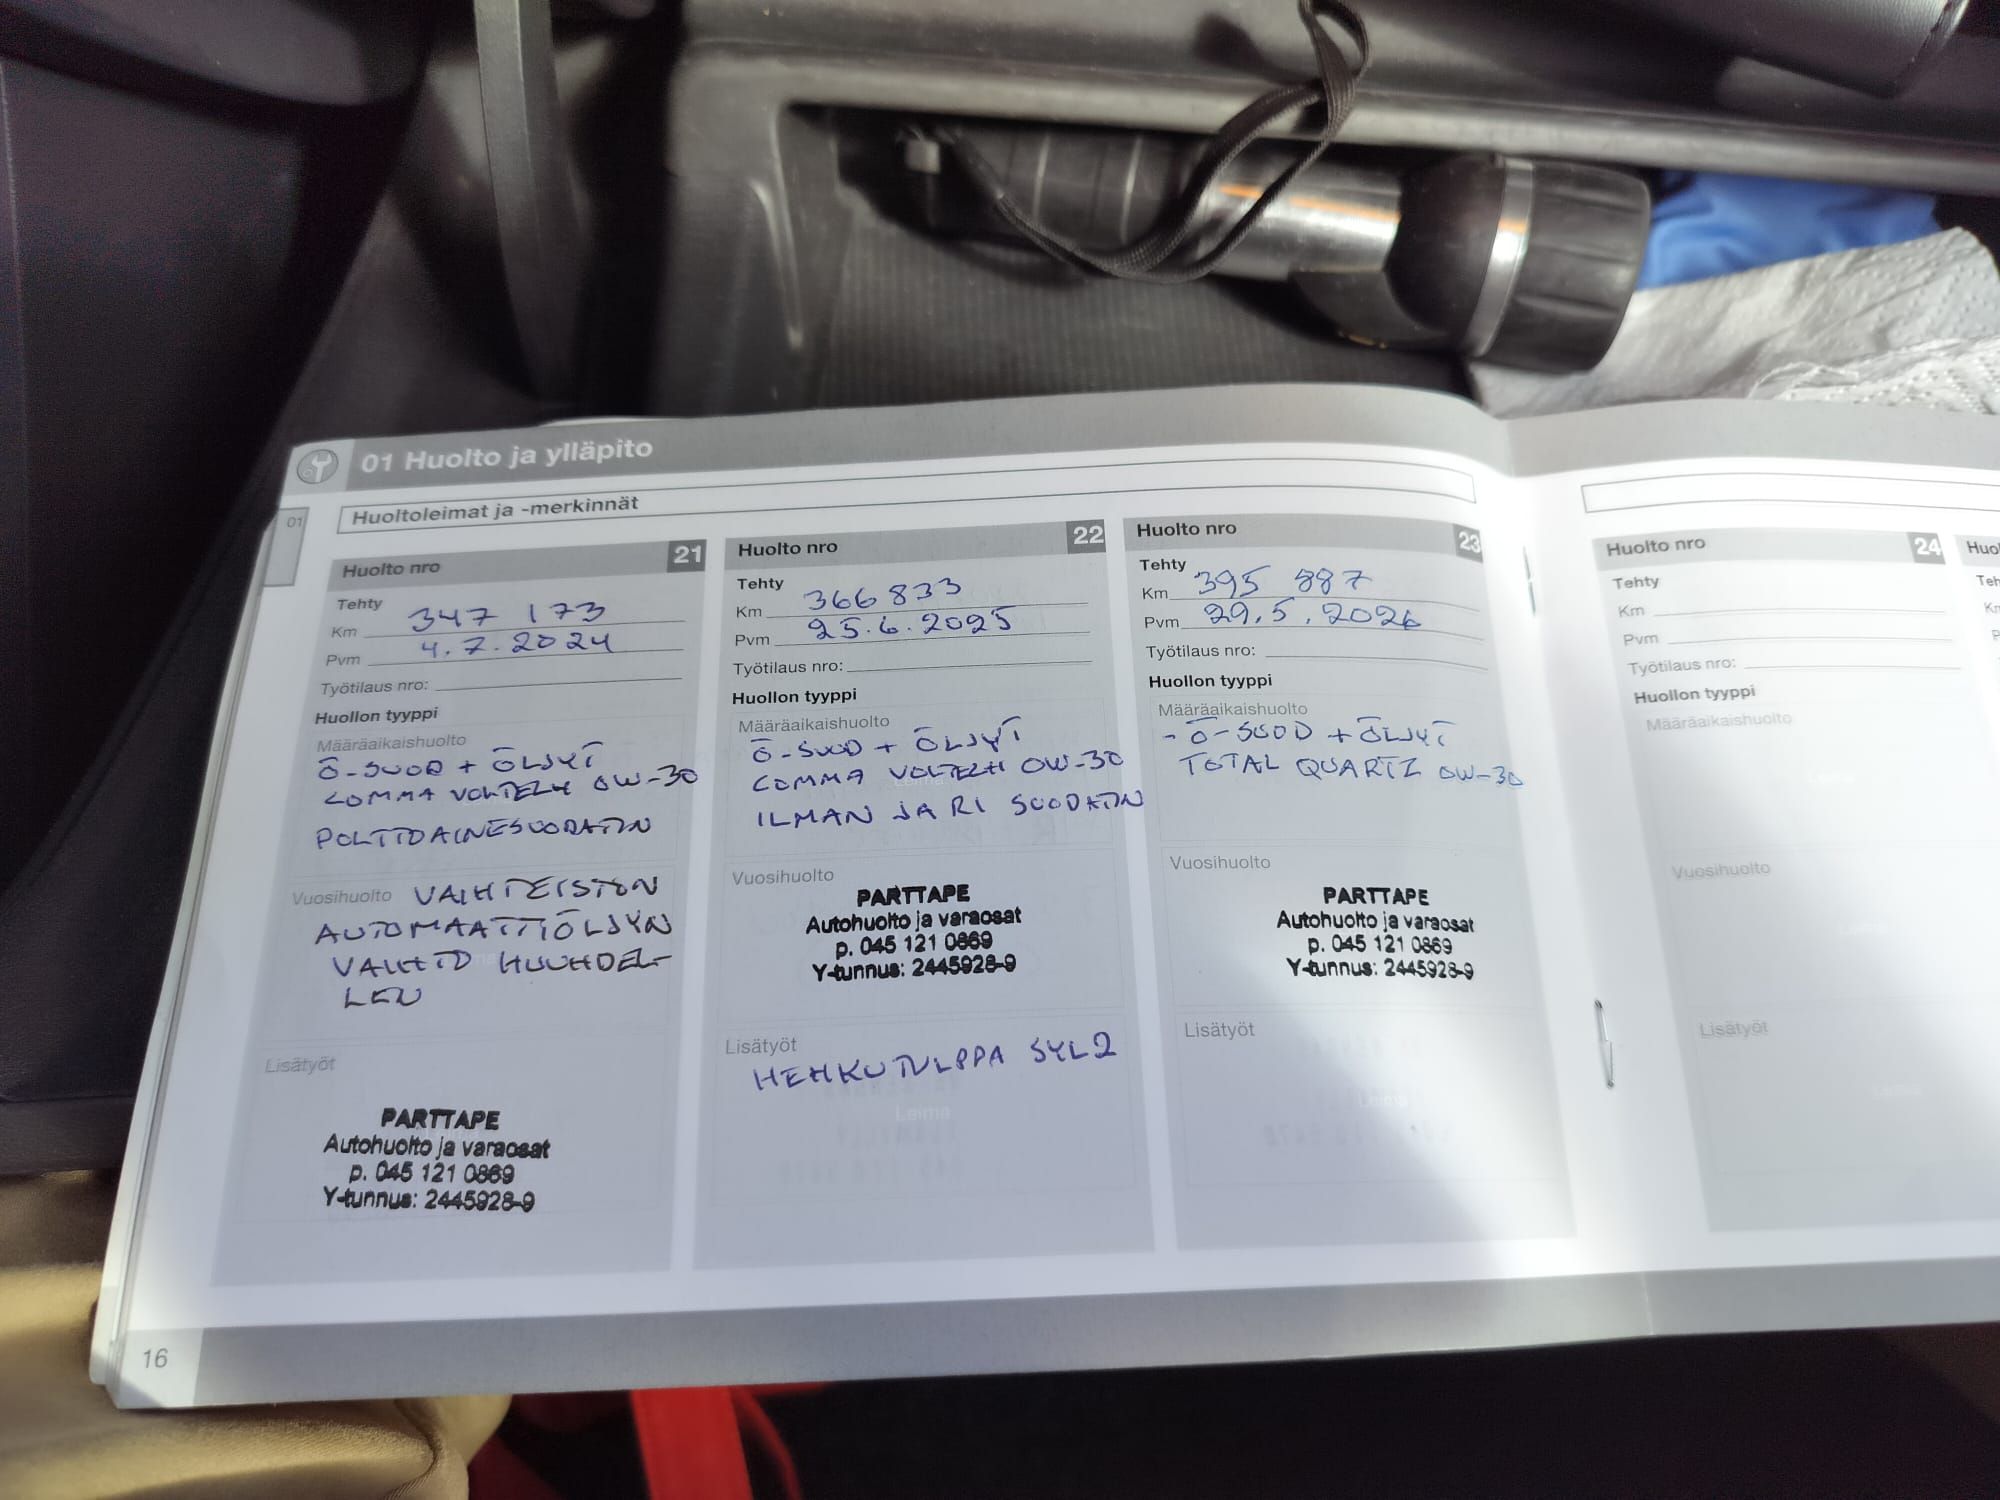 01 Huolto ja ylläpito
01
Huoltoleimat ja -merkinnät
Huolto nro 21
Tehty
Km 347 173
Pvm 4.7.2024
Työtilaus nro:
Huollon tyyppi
Määräaikaishuolto
Ö-SUOD + ÖLJYT
COMMA VOLTECH 0W-30
POLTTOAINESUODATIN
Vuosihuolto VAIHTEISTON
AUTOMAATTIÖLJYN
VAIHTO HUUHDEL-
LEN
Lisätyöt
PARTTAPE
Autohuolto ja varaosat
p. 045 121 0869
Y-tunnus: 2445928-9
Huolto nro 22
Tehty
Km 366 833
Pvm 25.6.2025
Työtilaus nro:
Huollon tyyppi
Määräaikaishuolto
Ö-SUOD + ÖLJYT
COMMA VOLTECH 0W-30
ILMAN JA RI SUODATIN
Vuosihuolto
PARTTAPE
Autohuolto ja varaosat
p. 045 121 0869
Y-tunnus: 2445928-9
Lisätyöt
HEHKUTULPPA SYL2
Leima
Huolto nro 23
Tehty
Km 395 887
Pvm 29.5.2026
Työtilaus nro:
Huollon tyyppi
Määräaikaishuolto
- Ö-SUOD + ÖLJYT
TOTAL QUARTZ 0W-30
Vuosihuolto
PARTTAPE
Autohuolto ja varaosat
p. 045 121 0869
Y-tunnus: 2445928-9
Lisätyöt
Leima
Huolto nro 24
Tehty
Km
Pvm
Työtilaus nro:
Huollon tyyppi
Määräaikaishuolto
Leima
Vuosihuolto
Leima
Lisätyöt
Leima
16